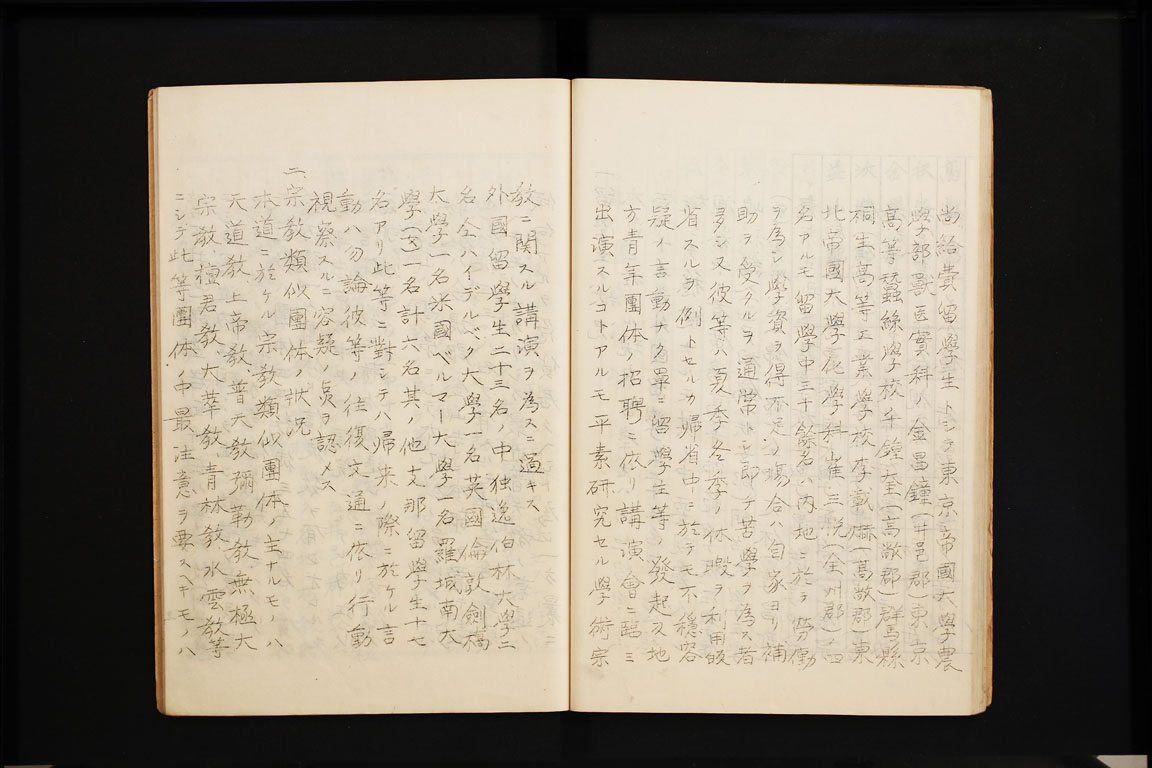 尚給費留學生トシテ東京帝國大學農
學部獸医實科ハ金昌鐘(井邑郡)東京
高等蠶絲學校千鐘奎(高敞郡)群馬縣
桐生高等工業學校李載麻(高敞郡)東
北帝國大學化學科崔三悅(全州郡)ノ四
名アルモ留學中三十餘名ハ内地ニ於テ労働
ヲ為シ學資ヲ得不足ノ場合ハ自家ヨリ補
助ヲ受クルヲ通常トシ即チ苦學ヲ為ス者
多シ又彼等ハ夏季冬季ノ休暇ヲ利用皈
省スルヲ例トセルカ帰省中ニ於テモ不穏容
疑ノ言動ナク單ニ留學生等ノ發起又地
方青年團体ノ招聘ニ依リ講演會ニ臨ミ
出演スルコトアルモ平素研究セル學術宗
教ニ関スル講演ヲ為スニ過キス
外國留學生二十三名ノ中独逸伯林大學二
名仝ハイデルベク大學一名英國倫敦劍橋
大學一名米國ベルマー大學一名羅城南大
學(女)一名計六名其ノ他支那留學生十七
名アリ此等ニ對シテハ帰来ノ際ニ於ケル言
動ハ勿論彼等ノ往復文通ニ依リ行動
視察スルニ容疑ノ点ヲ認メス
二、宗教類似團体ノ狀况
本道ニ於ケル宗教類似團体ノ主ナルモノハ
天道教、上帝教、普天教彌勒教無極大
宗教、檀君教、大華教、青林教、水雲教等
ニシテ此等團体ノ中最注意ヲ要スヘキモノハ